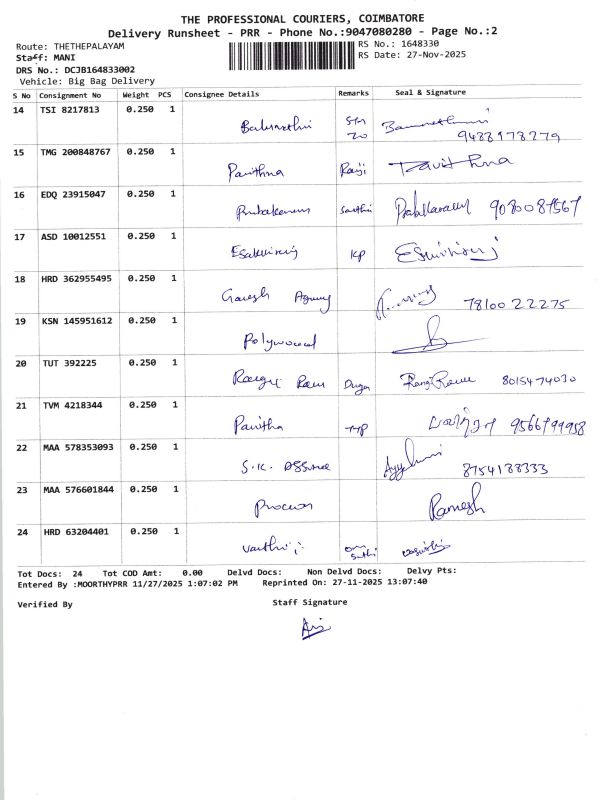 THE PROFESSIONAL COURIERS, COIMBATORE
Delivery Runsheet - PRR - Phone No.:9047080280 - Page No.:2
Route: THETHEPALAYAM
RS No.: 1648330
Staff: MANI
RS Date: 27-Nov-2025
DRS No.: DCJB164833002
Vehicle: Big Bag Delivery
S No Consignment No Weight PCS Consignee Details Remarks Seal & Signature
14 TSI 8217813 0.250 1
9488178279
15 TMG 200848767 0.250 1 Pavithna
16 EDQ 23915047 0.250 1 Prabakaran 9080087567
17 ASD 10012551 0.250 1 Esakkiraj KP
18 HRD 362955495 0.250 1 Ganesh Agency 78100 22275
19 KSN 145951612 0.250 1 Polywood
20 TUT 392225 0.250 1 Ram 8015474030
21 TVM 4218344 0.250 1 Pavitha
22 MAA 578353093 0.250 1 S.K. 8754188333
23 MAA 576601844 0.250 1 Ramesh
24 HRD 63204401 0.250 1
Tot Docs: 24 Tot COD Amt: 0.00 Delvd Docs: Non Delvd Docs: Delvy Pts:
Entered By :MOORTHYPRR 11/27/2025 1:07:02 PM Reprinted On: 27-11-2025 13:07:40
Verified By Staff Signature